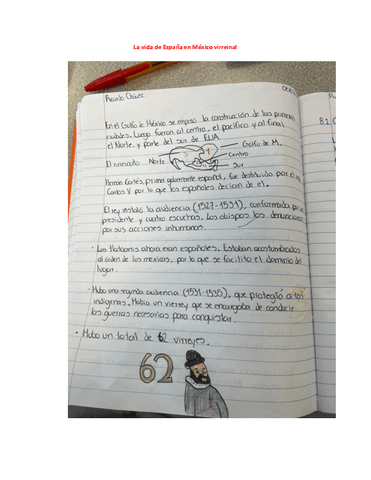 La vida de España en México virreinal
Ricardo Chávez
En el Golfo de México se empezó la construcción de las primeras
ciudades. Luego fueron al centro, el pacífico y al final
el Norte, y parte del sur de EUA.
Golfo de M.
El virreinato Norte 1 Centro
Sur
Hernán Cortés, primer gobernante español, fue destituido por el
Carlos V. por lo que los españoles decían de el.
El rey instaló la audiencia (1527-1531), conformada
presidente y cuatro escuchas. Los obispos los denunciaron
por sus acciones inhumanas.
• Los tlatoanis ahora eran españoles. Estaban acostumbrados
al orden de los mexicas, por lo que se facilitó el dominio del
lugar.
• Hubo una segunda audiencia (1531-1535), que protegió a los
indígenas. Había un virrey que se encargaba de conducir
las guerras necesarias para conquistar.
• Hubo un total de 62 virreyes.
62